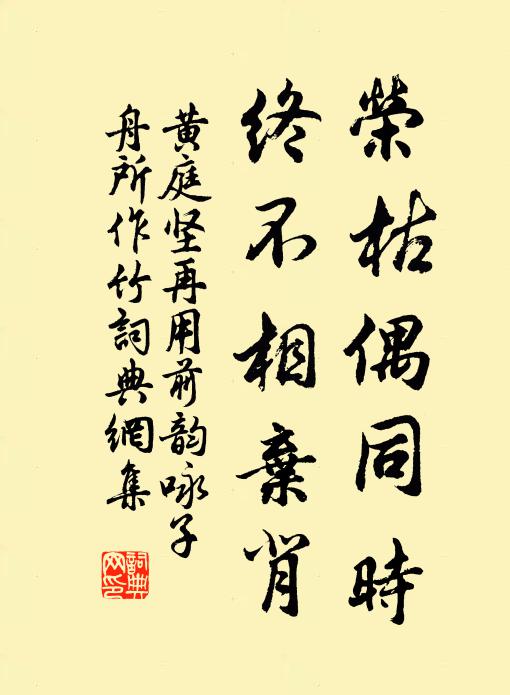 榮枯偶同時
終不相棄背
黄庭坚再用前韵咏子
舟所作竹詞典網集
詞典网印